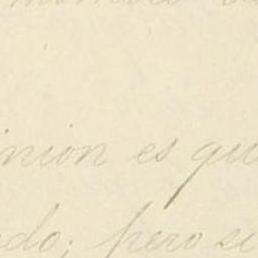 inion es qu
do; pero si